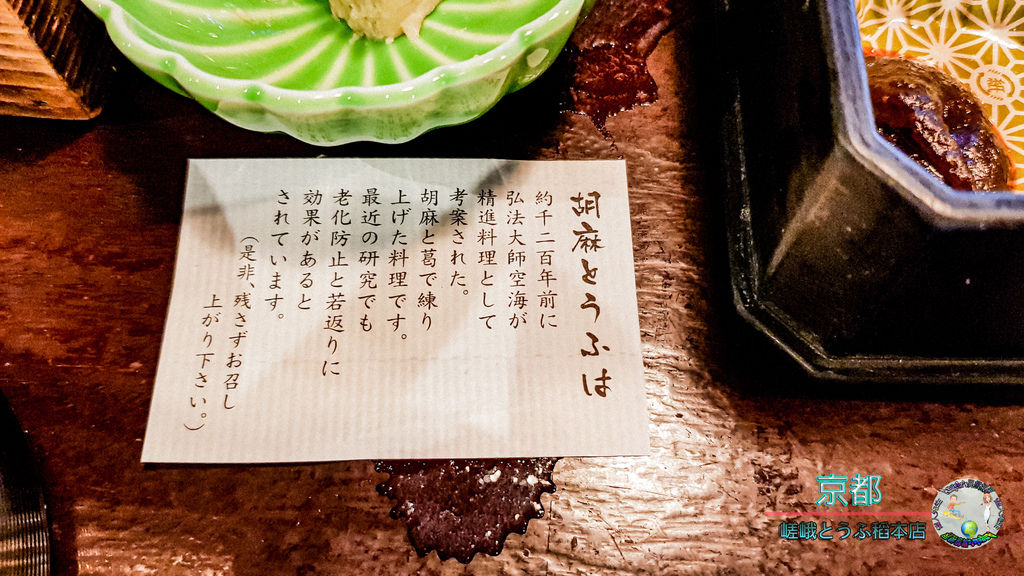 胡麻とうふは
約千二百年前に
弘法大師空海が
精進料理として
考案された。
胡麻と葛で練り
上げた料理です。
最近の研究でも
老化防止と若返りに
効果があると
されています。
(是非、残さずお召し
上がり下さい。)
京都
嵯峨とうふ稲本店